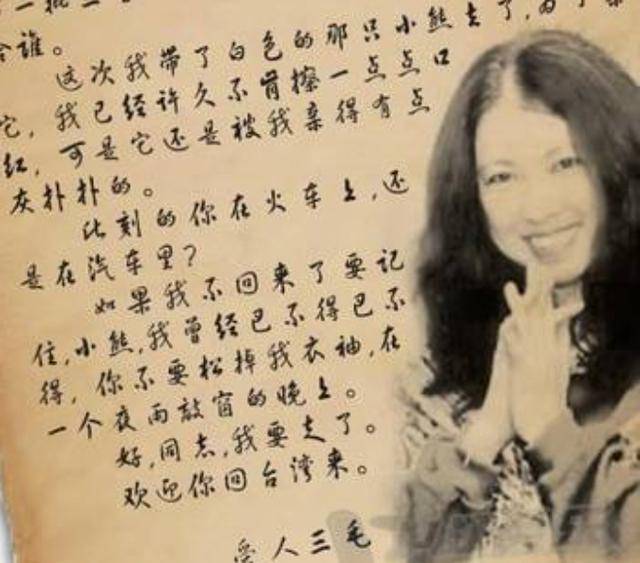 会谁。
这次我带了白色的那只小熊去了,为了亲
它,我已经许久不肯擦一点点口
红,可是它还是被我亲得有点
灰扑扑的。
此刻的你在火车上,还
是在汽车里?
如果我不回来了要记
住,小熊,我曾经巴不得巴不
得,你不要松掉我衣袖,在
一个夜雨敲窗的晚上。
好,同志,我要走了。
欢迎你回台湾来。
爱人三毛